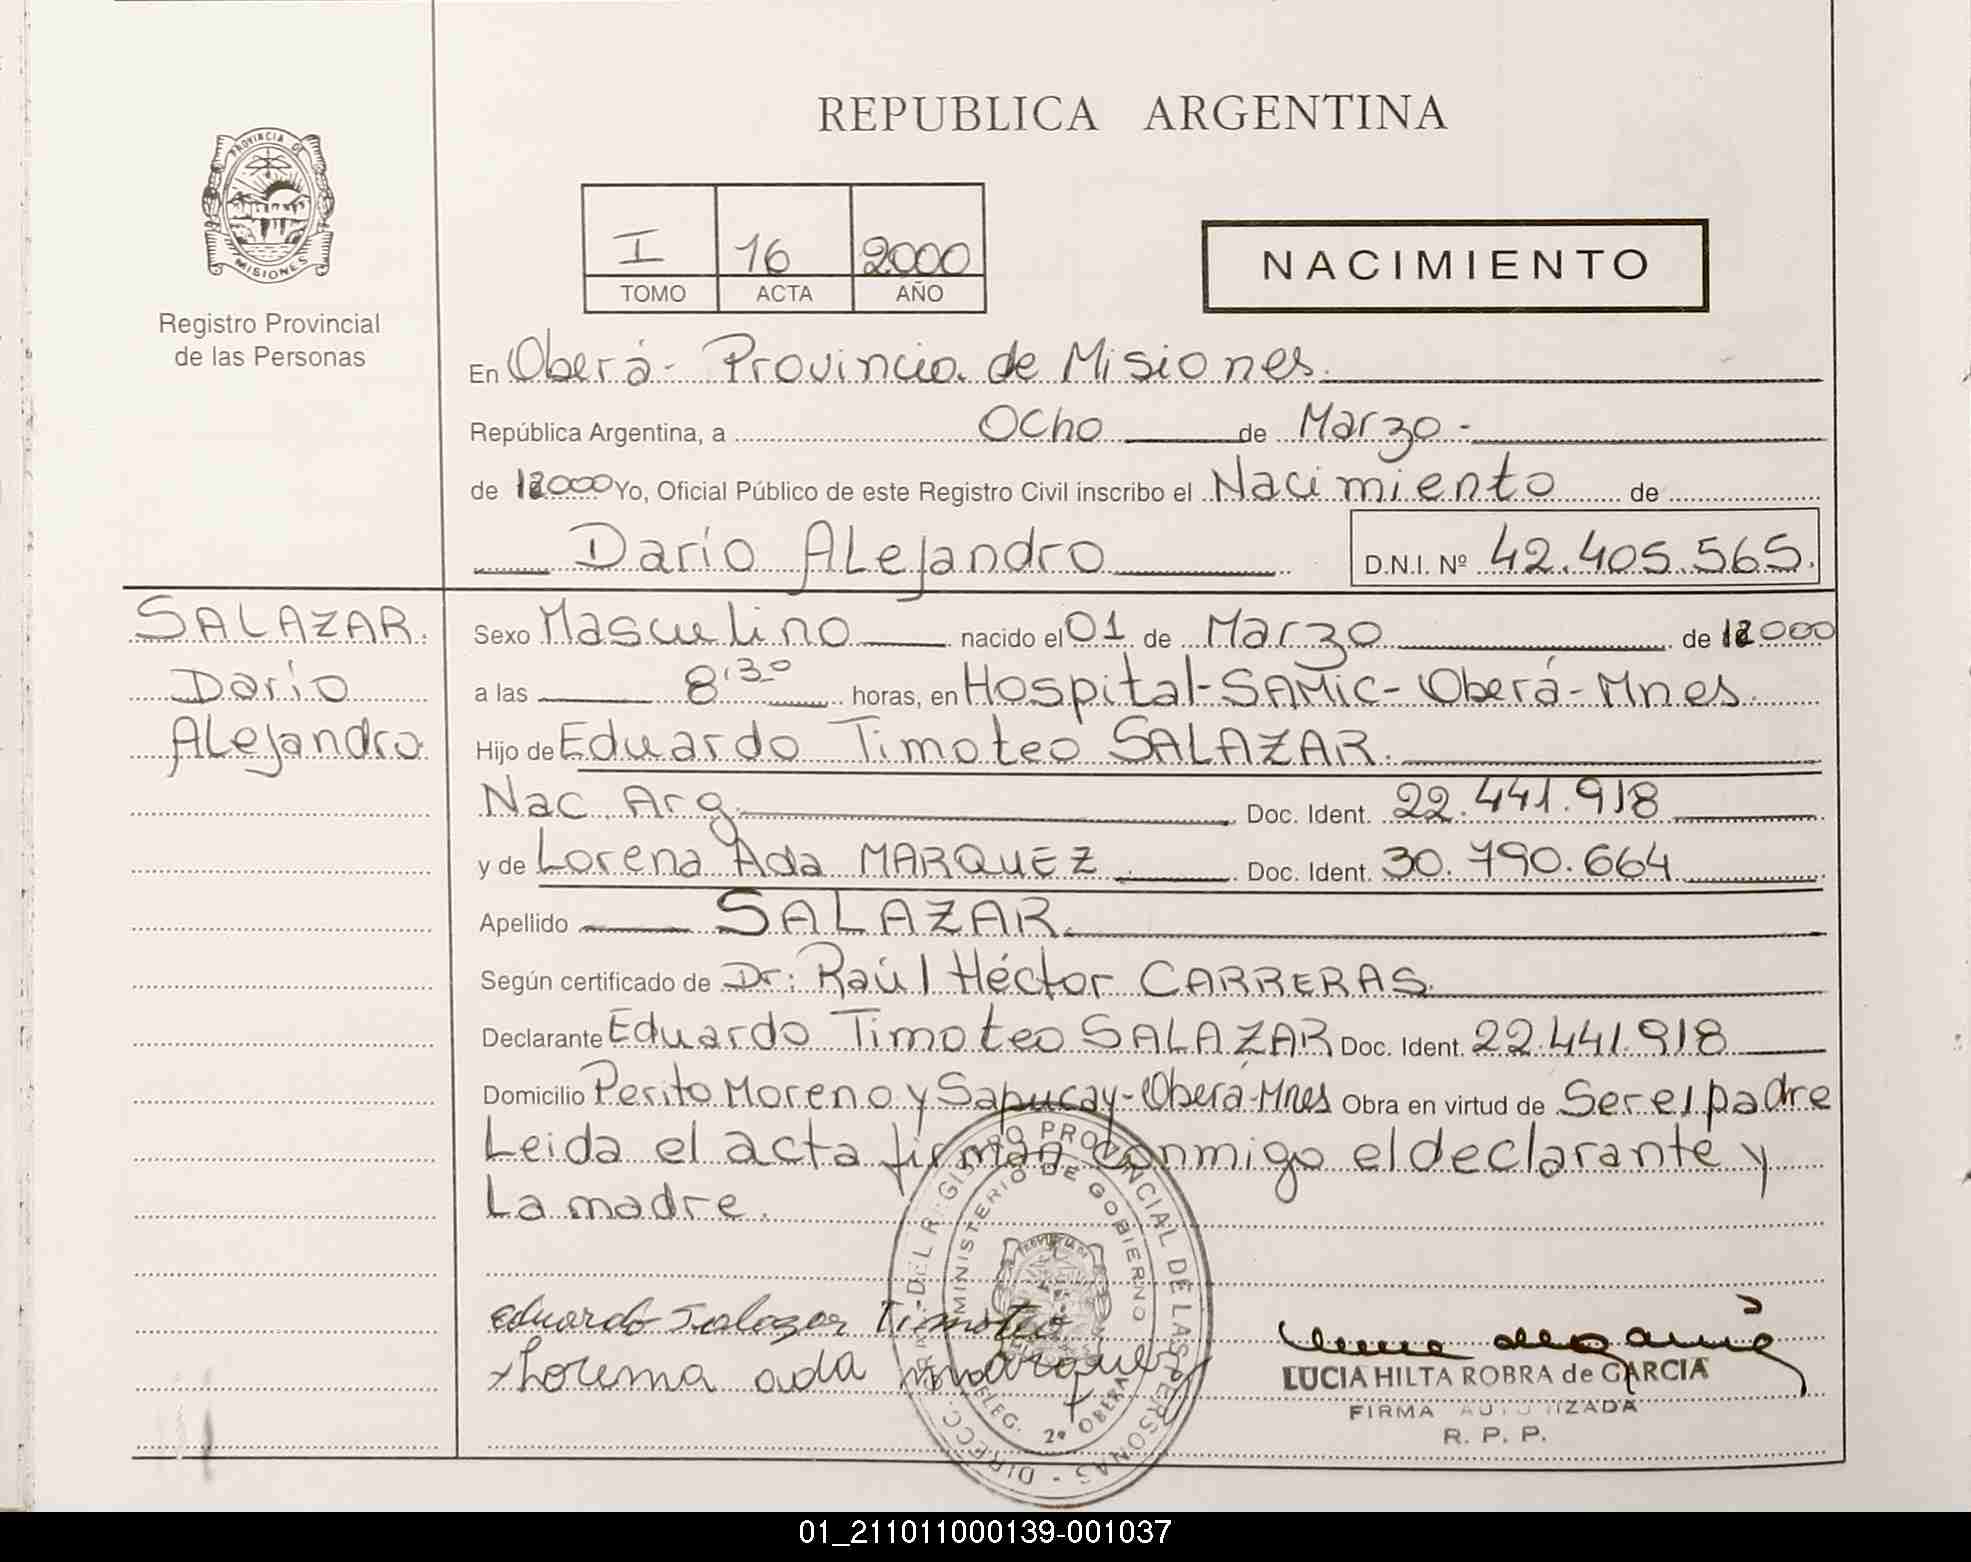 REPUBLICA ARGENTINA
PROVINCIA DE
MISIONES
Registro Provincial
de las Personas
I 16 2000
TOMO ACTA AÑO
NACIMIENTO
En Oberá - Provincia de Misiones.
República Argentina, a Ocho de Marzo -
de 2000 Yo, Oficial Público de este Registro Civil inscribo el Nacimiento de
Darío Alejandro D.N.I. Nº 42.405.565.
SALAZAR.
Darío
Alejandro.
Sexo Masculino nacido el 01 de Marzo de 2000
a las 8'30 horas, en Hospital-SAMic-Oberá-Mnes.
Hijo de Eduardo Timoteo SALAZAR.
Nac. Arg. Doc. Ident. 22.441.918
y de Lorena Ada MARQUEZ Doc. Ident. 30.790.664
Apellido SALAZAR.
Según certificado de Dr: Raúl Héctor CARRERAS.
Declarante Eduardo Timoteo SALAZAR Doc. Ident. 22.441.918
Domicilio Perito Moreno y Sapucay-Oberá-Mnes Obra en virtud de Ser el padre
Leida el acta firman conmigo el declarante y
La madre.
Eduardo Salazar Timoteo
x Lorema ada marquez
DIRECC. GRAL. DEL REGISTRO PROVINCIAL DE LAS PERSONAS
MINISTERIO DE GOBIERNO
DELEG. 2º OBERA
LUCIA HILTA ROBRA de GARCIA
FIRMA AUTORIZADA
R. P. P.
01_211011000139-001037